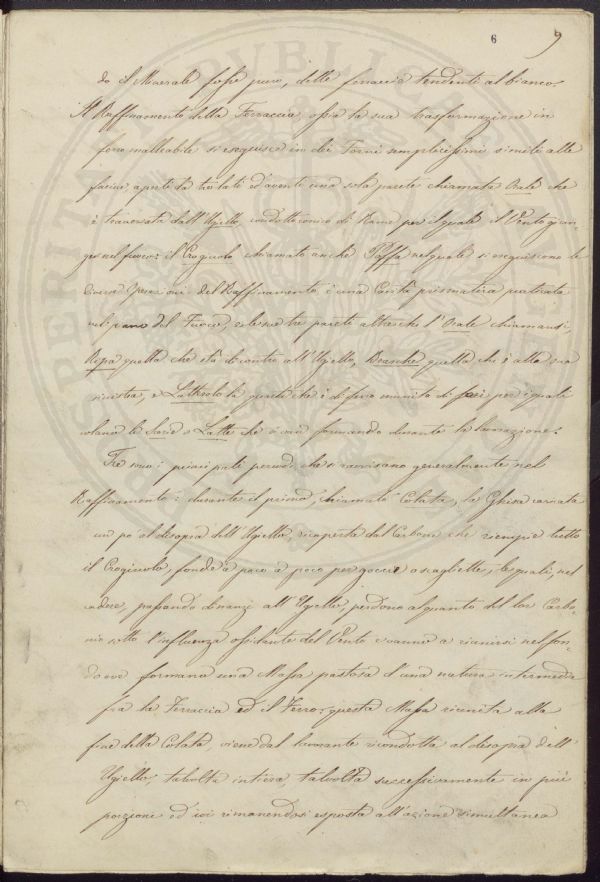 6 9
do il Minerale fosse puro, delle tendenti al bianco.
Il Raffinamento della Ferraccia, ossia la sua trasformazione in
ferro malleabile si eseguisce in dei Forni semplicissimi simili alle
fucine, aperte da tre lati ed avente una sola parete chiamata Orale che
è traversata dall'Ugello, condotto conico di Rame per il quale il Vento giun-
ge nel fuoco: il Crogiuolo chiamato anche nel quale si eseguiscono le
diverse Operazioni del Raffinamento è una Cavità prismatica
nel piano del Fuoco, e le sue tre pareti oltreché l'Orale chiamansi,
Repa quella che stà di contro all'Ugello, quella che è alla sua
sinistra, e Latterola la quarta che è di faccia munita di fori per i quali
colano le Scorie o Latte che si van formando durante la lavorazione.
Tre sono i principali periodi che si ravvisano generalmente nel
Raffinamento: durante il primo, chiamato Colata, la Ghisa
un po al disopra dell'Ugello, ricoperta dal Carbone che riempie tutto
il Crogiuolo, fonde a poco a poco per goccie o scagliette, le quali, nel
cadere, passando dinanzi all'Ugello, perdono alquanto del lor Carbo-
nio sotto l'influenza ossidante del Vento e vanno a riunirsi nel fon-
do ove formano una Massa pastosa d'una natura intermedia
fra la Ferraccia ed il Ferro: questa Massa riunita alla
fine della Colata, viene dal lavorante ricondotta al disopra dell'
Ugello, talvolta intiera, talvolta successivamente in più
porzioni ed ivi rimanendosi esposta all'azione simultanea